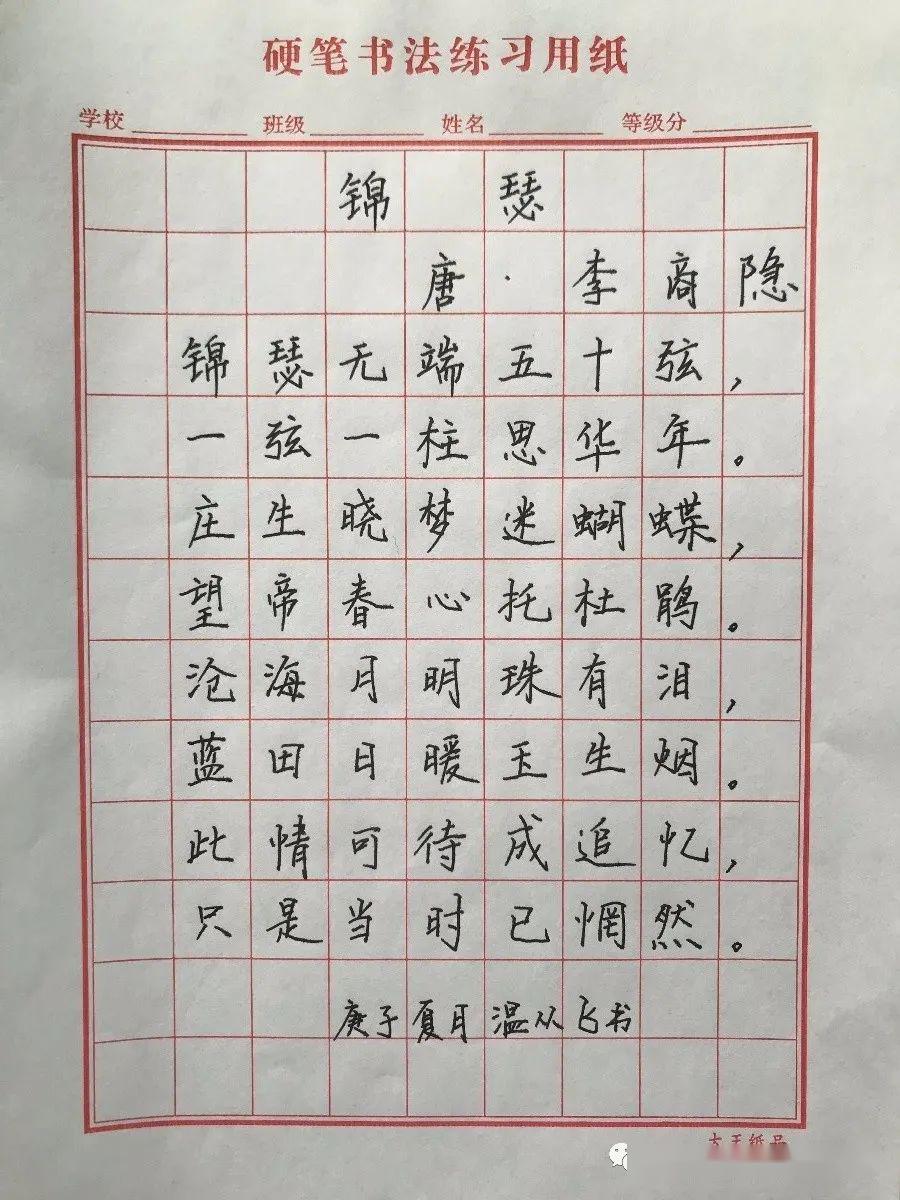 硬笔书法练习用纸
学校 班级 姓名 等级分
锦瑟
唐·李商隐
锦瑟无端五十弦，
一弦一柱思华年。
庄生晓梦迷蝴蝶，
望帝春心托杜鹃。
沧海月明珠有泪，
蓝田日暖玉生烟。
此情可待成追忆，
只是当时已惘然。
庚子夏月温从飞书